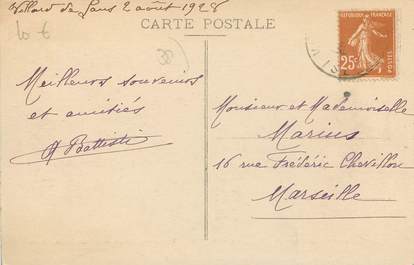 Villard de Lans 2 août 1928
CARTE POSTALE
10 €
38
Meilleurs souvenirs
et amitiés
A Battisti
REPUBLIQUE FRANÇAISE
25c
POSTES
Monsieur et Mademoiselle
Marius
16 rue Frédéric Chevillon
Marseille